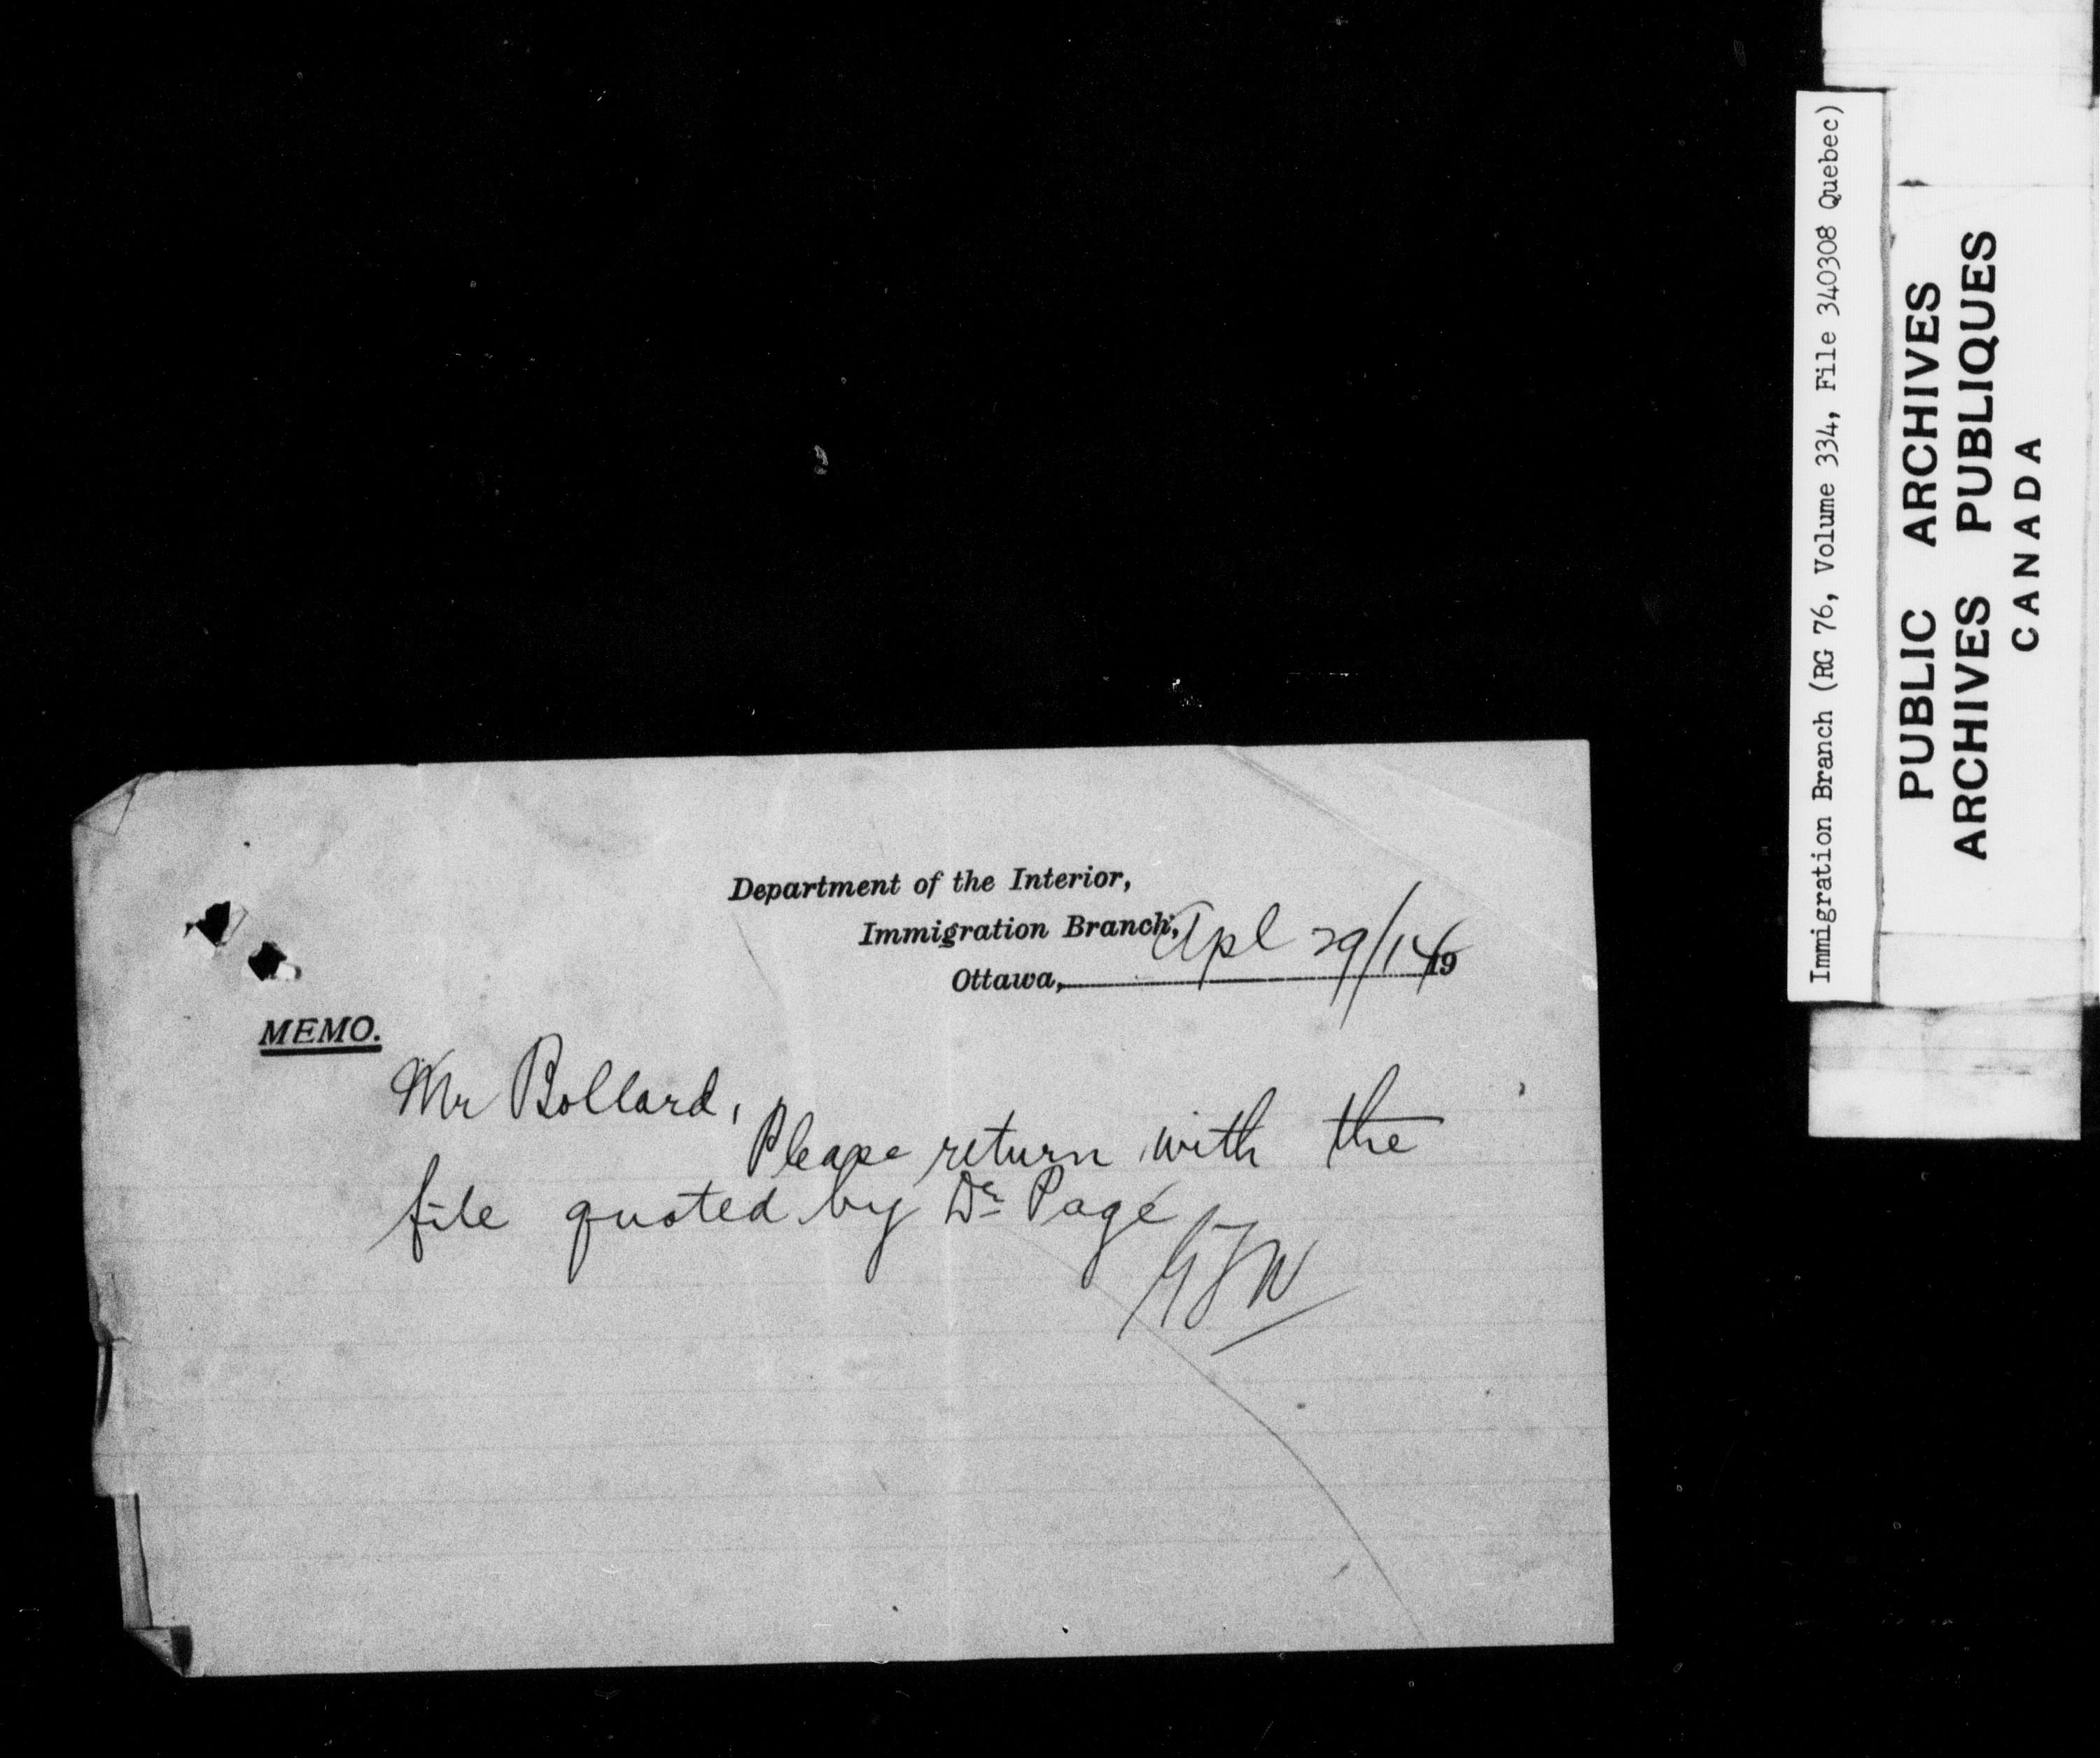 Department of the Interior,
Immigration Branch,
Ottawa, Apl 29/14 19
MEMO.
Mr Bollard,
Please return with the
file quoted by Dr Pagé
Immigration Branch (RG 76, Volume 334, File 340308 Quebec)
PUBLIC ARCHIVES
ARCHIVES PUBLIQUES
CANADA